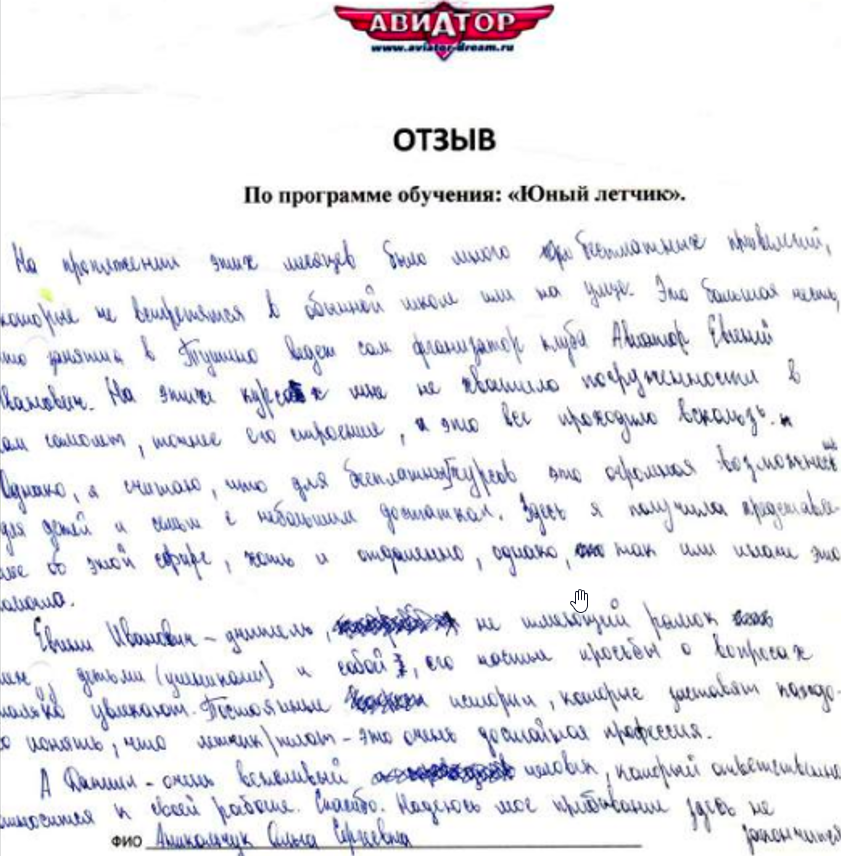 АВИАТОР
www.aviator-dream.ru
ОТЗЫВ
По программе обучения: «Юный летчик».
На протяжении этих месяцев было много бесплатных привелегий,
которые не встретятся в обычной школе или на улице. Это большая честь,
что занятия в Тушино ведет сам организатор клуба Авиатор Евгений
Иванович. На этих курсах мне не хватило погруженности в
сам самолет, точнее его строение, а это все проходило вскользь.
Однако, я считаю, что для бесплатных курсов это огромная возможность
для детей и семьи с небольшим достатком. Здесь я получила представле-
ние об этой сфере, хоть и отдаленно, однако, так или иначе это
Евгений Иванович - учитель, не имеющий рамок
детьми (учениками) и собой, его частые просьбы о вопросах
только увлекают. Постоянные истории, которые заставят каждо-
го понять, что летчик/пилот - это очень достойная профессия.
А Даниил - очень вежливый человек, который ответственно
относится к своей работе. Спасибо. Надеюсь мое прибывание здесь не
закончится
ФИО Ольга Сергеевна